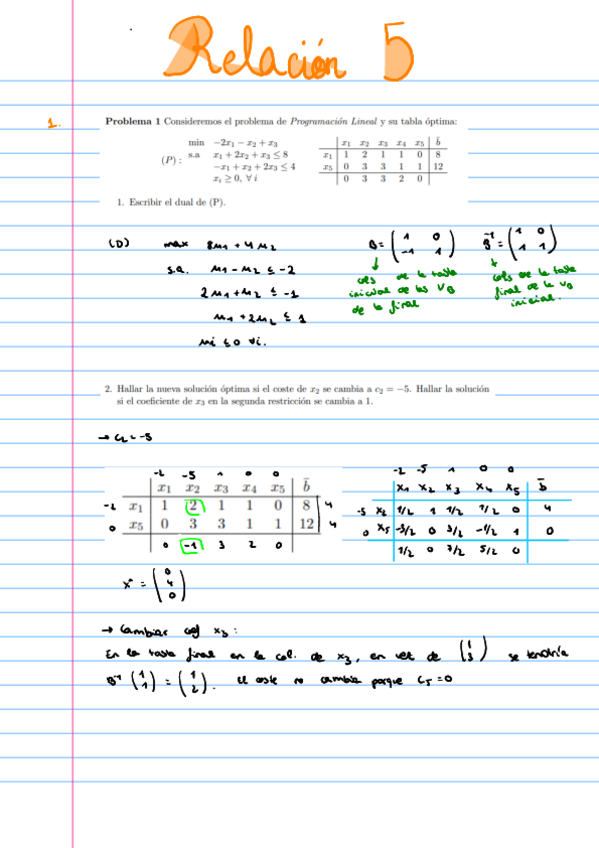 Relación 5
1.
Problema 1 Consideremos el problema de Programación Lineal y su tabla óptima:
min −2x₁ − x₂ + x₃
(P) : s.a x₁ + 2x₂ + x₃ ≤ 8
−x₁ + x₂ + 2x₃ ≤ 4
xᵢ ≥ 0, ∀ i
x₁ x₂ x₃ x₄ x₅ b̄
x₁ 1 2 1 1 0 8
x₅ 0 3 3 1 1 12
0 3 3 2 0
1. Escribir el dual de (P).
(D) max 8μ₁ + 4μ₂
s.a. μ₁ - μ₂ ≤ -2
2μ₁ + μ₂ ≤ -1
μ₁ + 2μ₂ ≤ 1
μi ≤ 0 ∀i.
B = ( 1 0
-1 1 )
cols de la tabla
inicial de las VB
de la final
B⁻¹ = ( 1 0
1 1 )
cols de la tabla
final de la VB
inicial.
2. Hallar la nueva solución óptima si el coste de x₂ se cambia a c₂ = −5. Hallar la solución
si el coeficiente de x₃ en la segunda restricción se cambia a 1.
→ c₂ = -5
-2 -5 1 0 0
x₁ x₂ x₃ x₄ x₅ b̄
-2 x₁ 1 2 1 1 0 8 4
0 x₅ 0 3 3 1 1 12 4
0 -1 3 2 0
-2 -5 1 0 0
x₁ x₂ x₃ x₄ x₅ b̄
-5 x₂ 1/2 1 1/2 1/2 0 4
0 x₅ -3/2 0 3/2 -1/2 1 0
1/2 0 7/2 5/2 0
x* = ( 0
4
0 )
→ Cambiar coef x₃ :
En la tabla final en la col. de x₃, en vez de (1 3) se tendría
B⁻¹ (1 1) = (1 2). El coste no cambia porque c₅ = 0